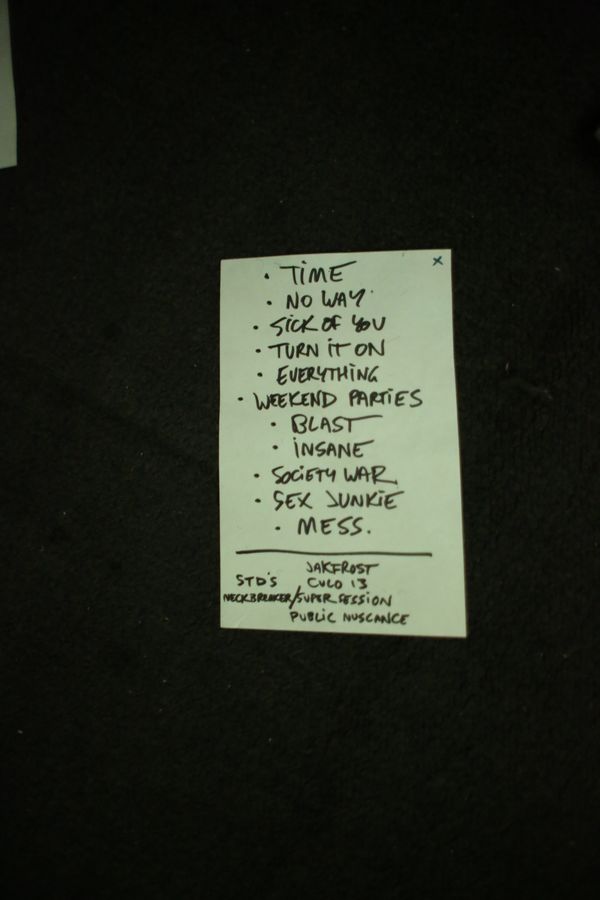 x
• TiME
• NO WAY
• SiCK OF YOU
• TURN iT ON
• EVERYTHiNG
• WEEKEND PARTiES
• BLAST
• iNSANE
• SOCiETY WAR
• SEX JUNKiE
• MESS.
JAKFROST
STD'S CULO 13
NECKBREAKER/SUPER SESSION
PUBLiC NUSCANCE